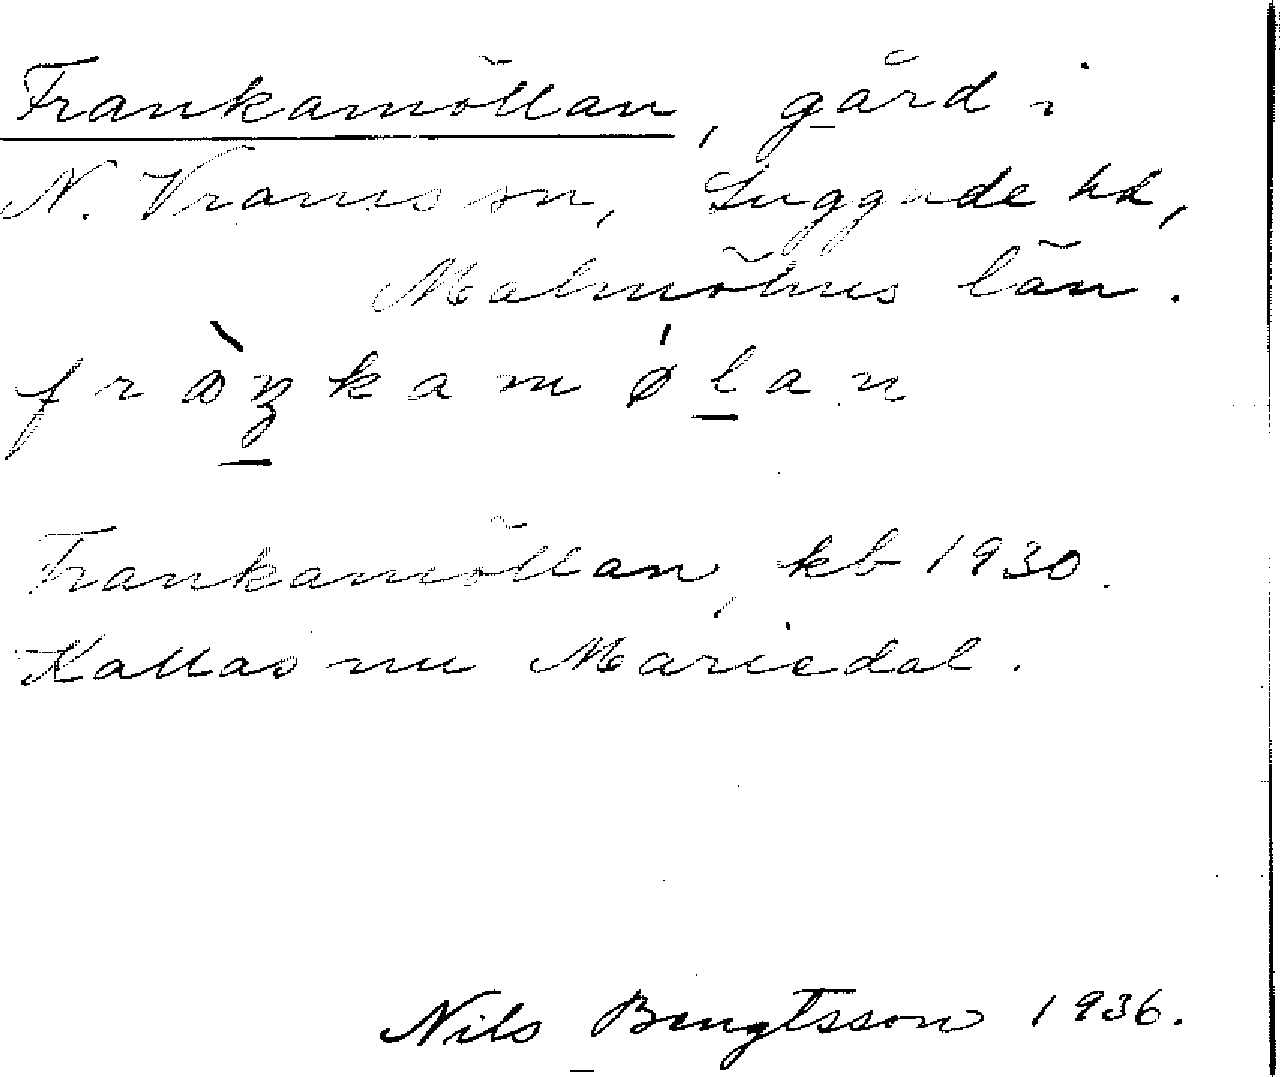 Frankamöllan, gård i
N. Vrams sn, Luggude hd,
Malmöhus län.
fràŋkamǿlan
Frankamöllan, kb 1930.
Kallas nu Mariedal.
Nils Bengtsson 1936.